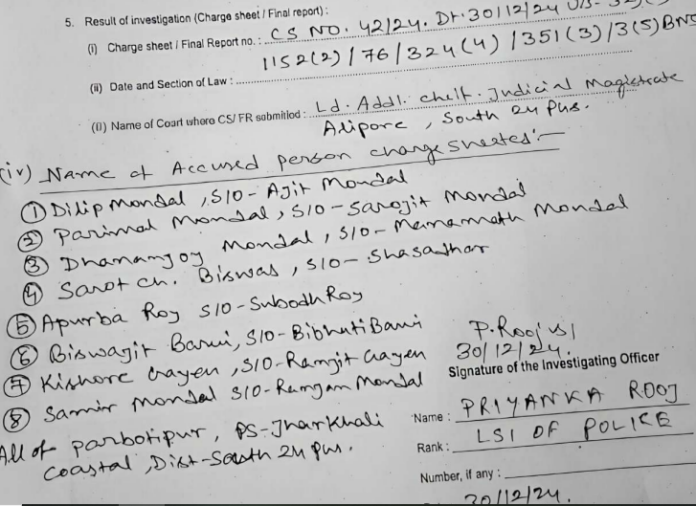 5. Result of investigation (Charge sheet / Final report) :
(i) Charge sheet / Final Report no. : CS NO. 42/24. Dt. 30/12/24 U/S-
1152(2) / 76 / 324(4) / 351(3) / 3(5) BNS
(ii) Date and Section of Law :
(ii) Name of Court where CS/ FR submitted : Ld. Addl. Chelf. Judicial Magistrate
Alipore, South 24 Pus.
(iv) Name of Accused person chargesheeted:-
① Dilip Mondal, S/O- Ajit Mondal
② Parimal Mondal, S/O- Sarojit Mondal
③ Dhananjoy Mondal, S/O- Mondal
④ Sarot Ch. Biswas, S/O- Shasadhar
⑤ Apurba Roy S/O- Subodh Roy
⑥ Biswajit Barui, S/O- Bibhuti Barui
⑦ Kishore Gayen, S/O- Ramjit Gayen
⑧ Samir Mondal S/O- Mondal
All of Parbotipur, PS- Jharkhali
Coastal, Dist- South 24 Pus.
P. Rooj
30/12/24.
Signature of the Investigating Officer
Name : PRIYANKA ROOJ
Rank : LSI OF POLICE
Number, if any :
30/12/24.